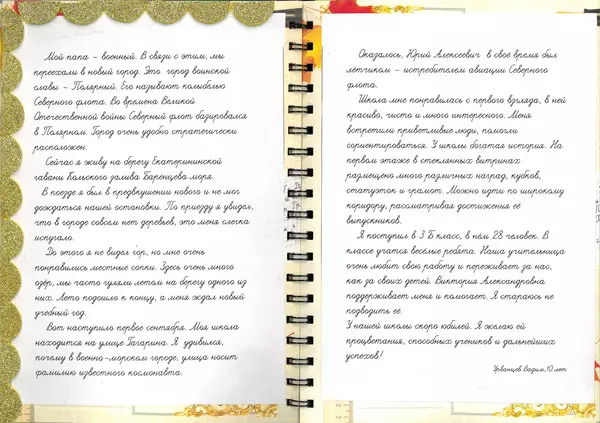 Мой папа - военный. В связи с этим, мы
переехали в новый город. Это город воинской
славы - Полярный. Его называют колыбелью
Северного флота. Во времена Великой
Отечественной войны Северный флот базировался
в Полярном. Город очень удобно стратегически
расположен.
Сейчас я живу на берегу Екатерининской
гавани Кольского залива Баренцева моря.
В поезде я был в предвкушении нового и не мог
дождаться нашей остановки. По приезду я увидел,
что в городе совсем нет деревьев, это меня слегка
испугало.
До этого я не видел гор, но мне очень
понравились местные сопки. Здесь очень много
озёр, мы часто гуляли летом на берегу одного из
них. Лето подошло к концу, а меня ждал новый
учебный год.
Вот наступило первое сентября. Моя школа
находится на улице Гагарина. Я удивился,
почему в военно-морском городе, улица носит
фамилию известного космонавта.
Оказалось, Юрий Алексеевич в своё время был
лётчиком - истребителем авиации Северного
флота.
Школа мне понравилась с первого взгляда, в ней
красиво, чисто и много интересного. Меня
встретили приветливые люди, помогли
сориентироваться. У школы богатая история. На
первом этаже в стеклянных витринах
размещено много различных наград, кубков,
статуэток и грамот. Можно идти по широкому
коридору, рассматривая достижения её
выпускников.
Я поступил в 3 Б класс, в нём 28 человек. В
классе учатся весёлые ребята. Наша учительница
очень любит свою работу и переживает за нас,
как за своих детей. Виктория Александровна
поддерживает меня и помогает. Я стараюсь не
подводить её.
У нашей школы скоро юбилей. Я желаю ей
процветания, способных учеников и дальнейших
успехов!
Урванцев Вадим, 10 лет